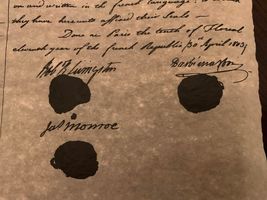 on and written in the french language; 
they have hereunto affixed their Seals —
Done at Paris the tenth of Floreal
eleventh year of the french Republic (30th April 1803)
Rob R Livingston
Barbé Marbois
Jas Monroe